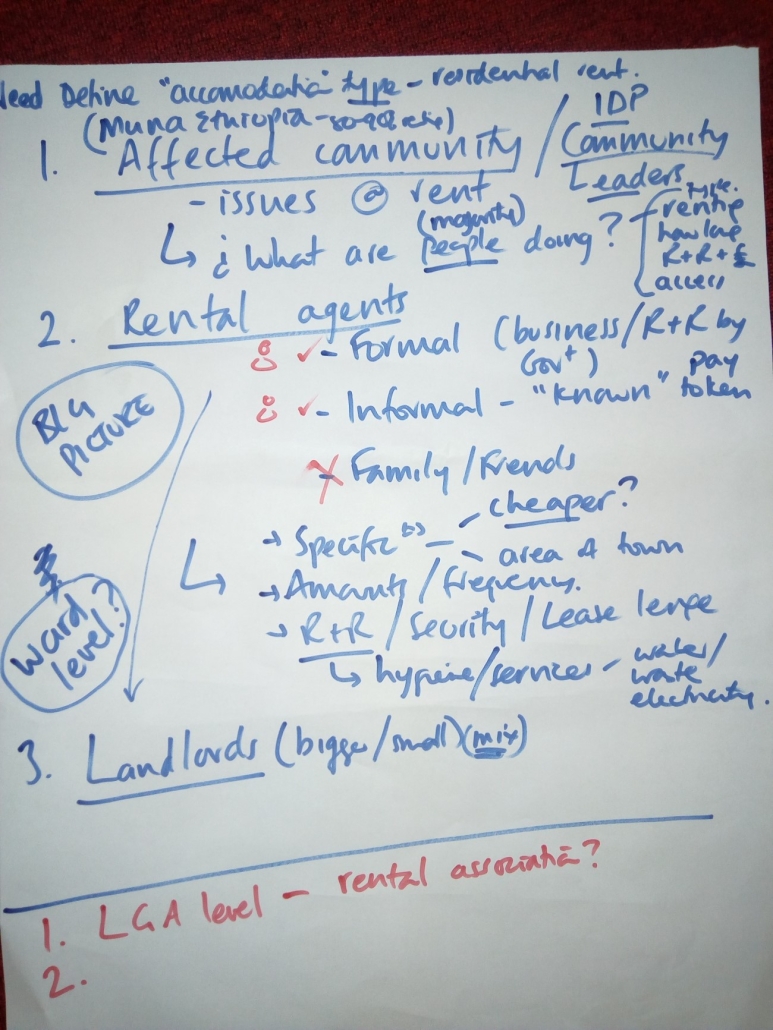 Need Define "accomodatiō" type - residential rent.
(Muna Ethiopia -
1. Affected community / IDP
Community
Leaders
- issues @ rent
(majority)
↳ ¿ What are people doing?
type.
renting
how long
R+R+£
access
2. Rental agents
✓ - Formal (business/R+R by
Gov^t)
✓ - Informal - "known" pay
token
BIG
PICTURE
X - Family/Friends
→ Specific - cheaper?
- area of town
↳ → Amounts/frequency.
→ R+R / Security / Lease
↳ hygiene/services - water/
waste
electricity.
Ward
level?
3. Landlords (bigger/small) (mix)
1. LGA level - rental associatiō?
2.